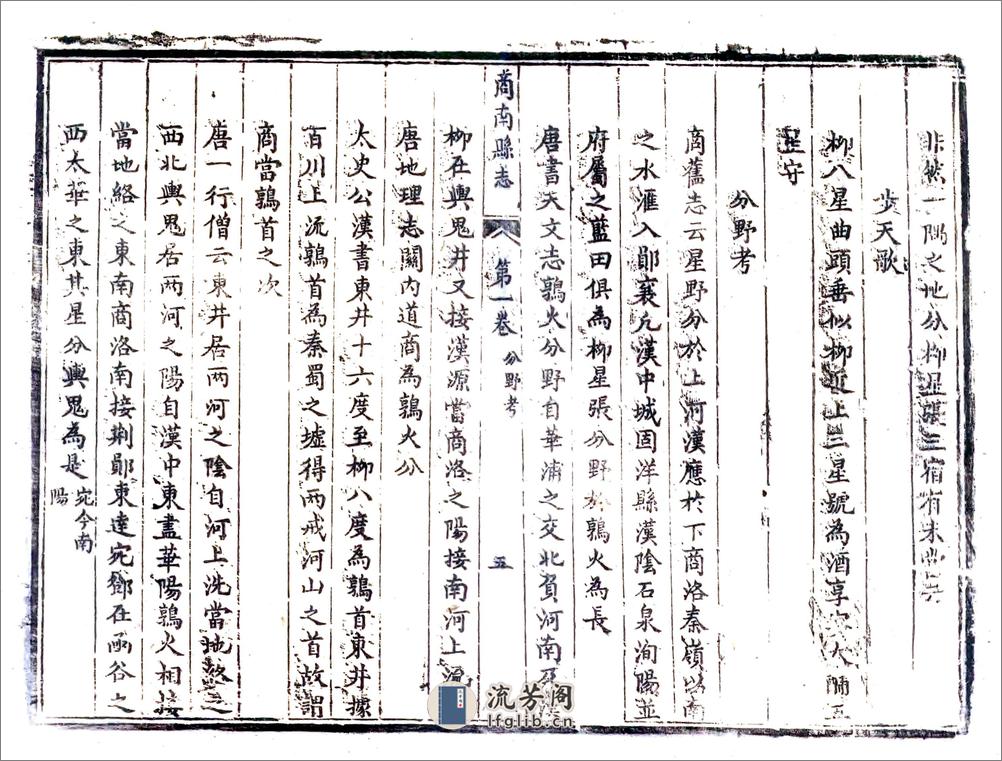 非然一隅之地分柳星張三宿有未
步天歌
柳八星曲頭垂似柳近上三星號為酒享宴大酺五
星守
分野考
商舊志云星野分於上河漢應於下商洛秦嶺以南
之水滙入鄖襄凡漢中城固洋縣漢陰石泉洵陽並
府屬之藍田俱為柳星張分野於鶉火為長
唐書天文志鶉火分野自華浦之交北負河南及
商南縣志 第一卷 分野考 五
柳在輿鬼井又接漢源當商洛之陽接南河上流
唐地理志關內道商為鶉火分
太史公漢書東井十六度至柳八度為鶉首東井據
百川上流鶉首為秦蜀之墟得兩戒河山之首故謂
商當鶉首之次
唐一行僧云東井居兩河之陰自河上洗當地絡之
西北輿鬼居兩河之陽自漢中東盡華陽鶉火相接
當地絡之東南商洛南接荆鄖東達宛鄧在函谷之
西太華之東其星分輿鬼為是宛今南陽
流芳阁
lfglib.cn